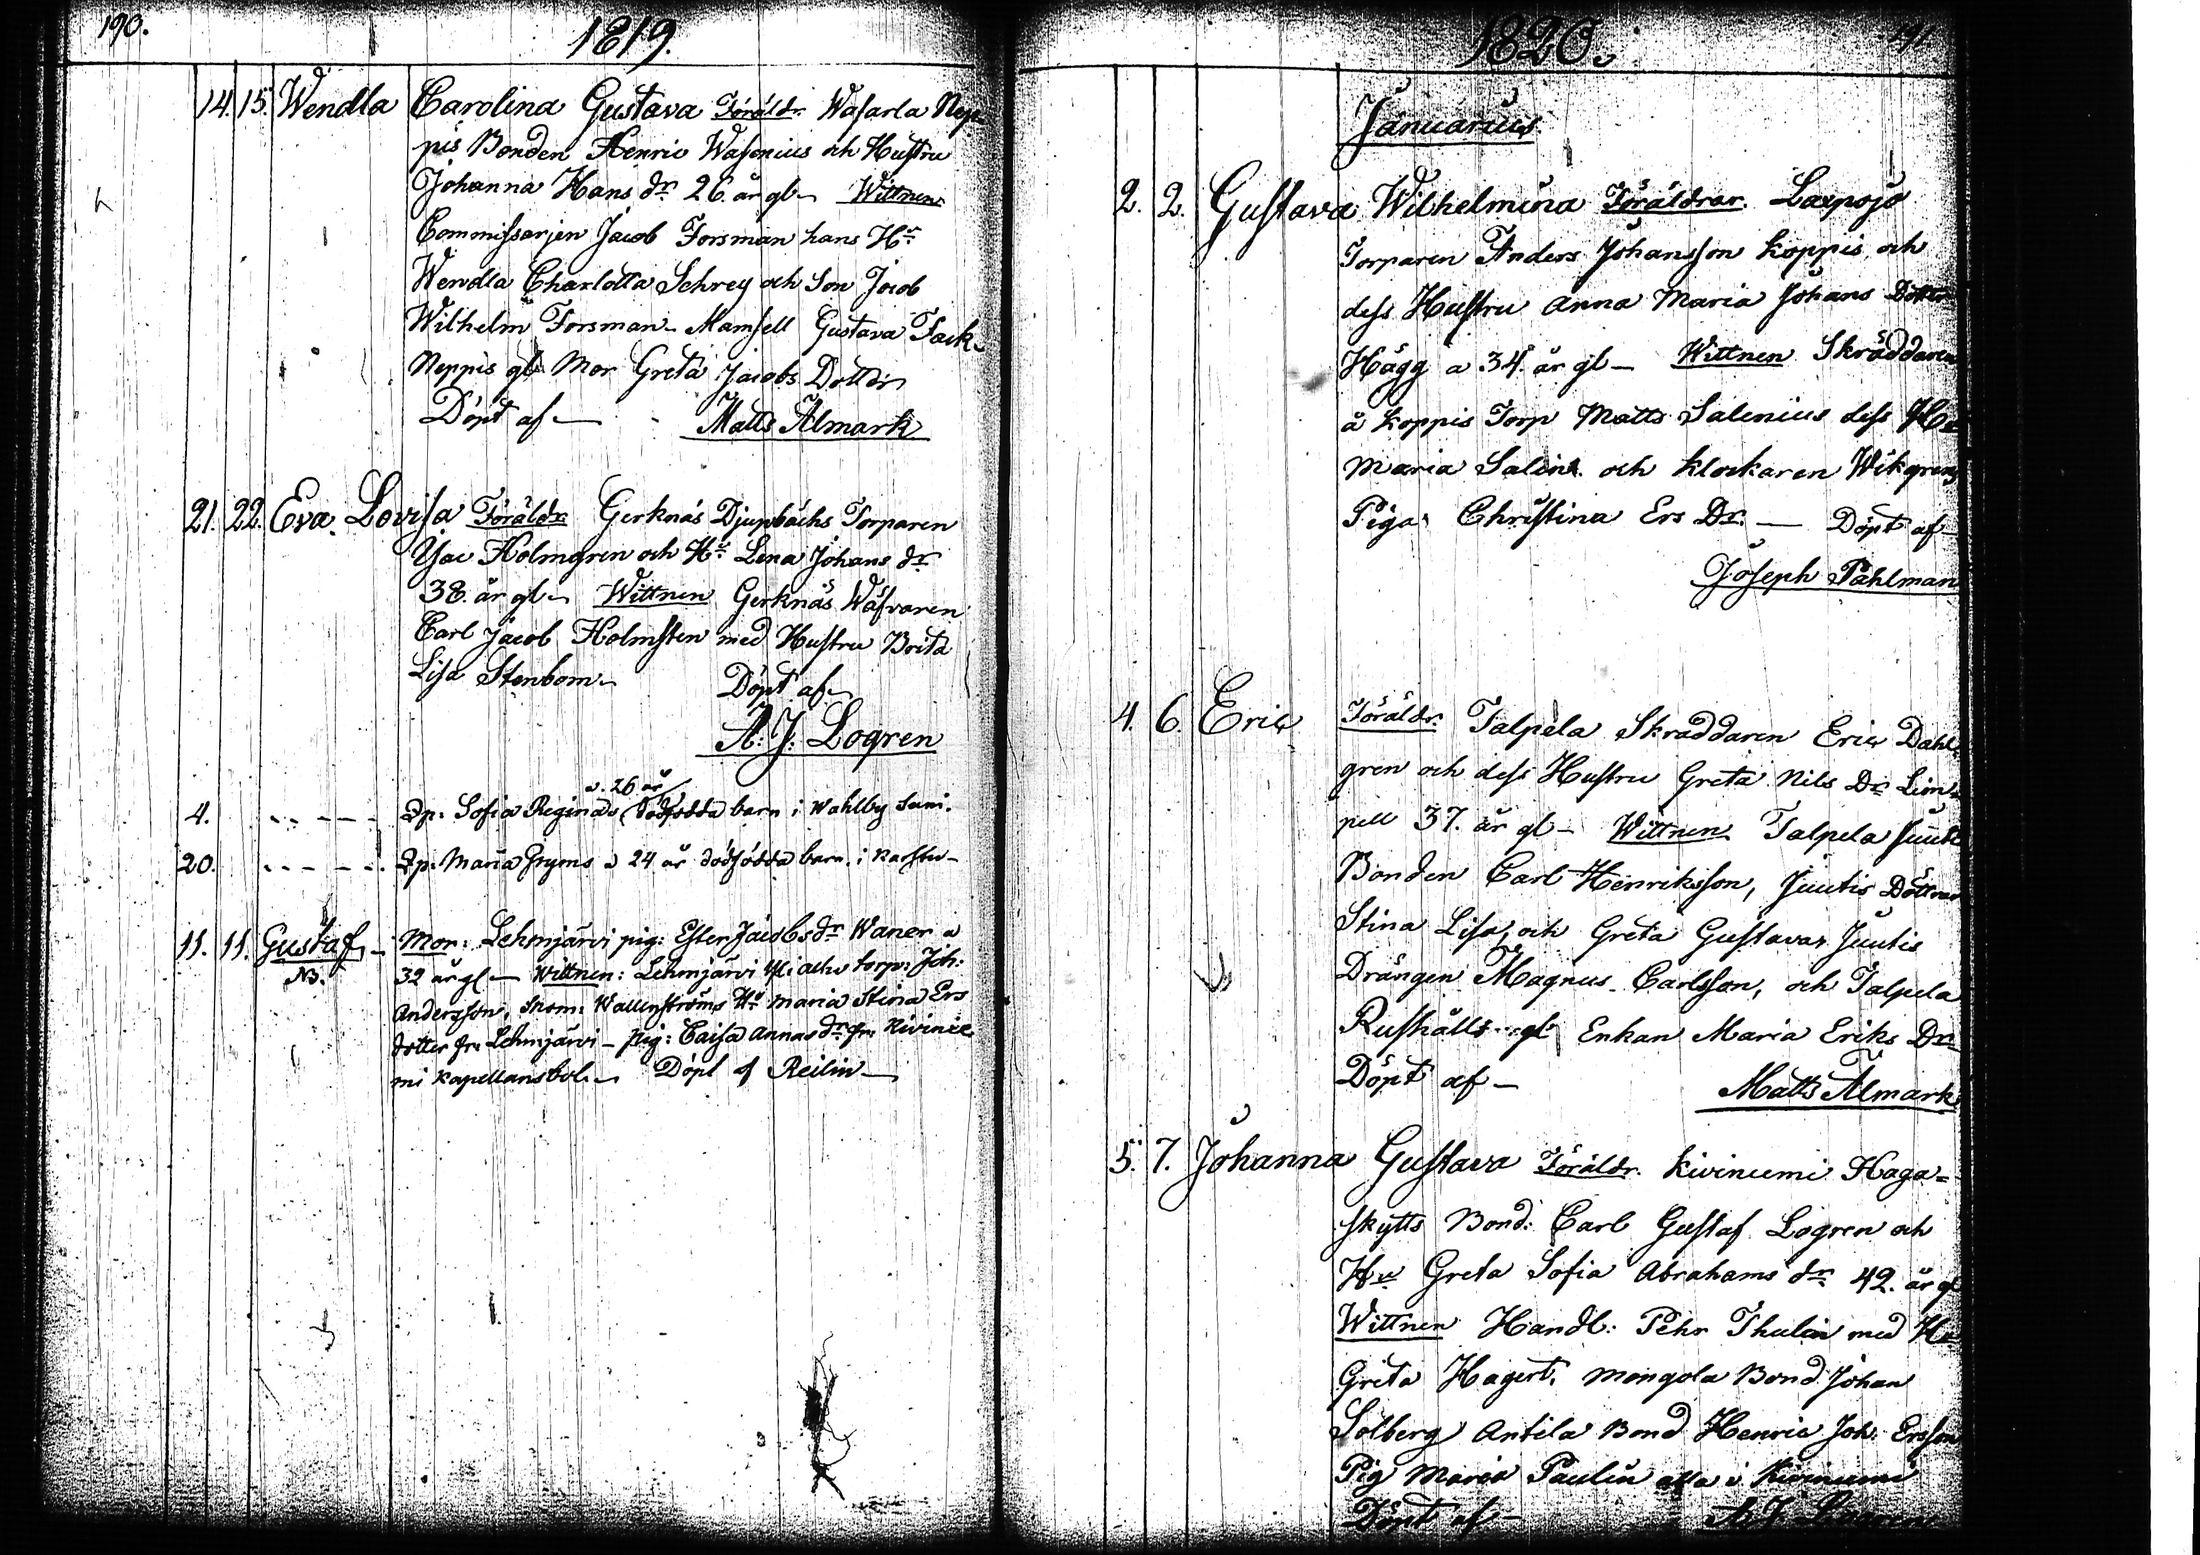 190.
1819.
14. 15. Wendla Carolina Gustava Föräldr. Wasarla Nep-
pis Bonden Henric Wasenius och Hustru
Johanna Hans dr 26. år gl. Wittnen
Commissarjen Jacob Forsman hans Hu
Wendla Charlotta Schrey och Son Jacob
Wilhelm Forsman. Mamsell Gustava Tack.
Neppis gl. Mor Greta Jacobs Dotter
Döpt af Matts Almark
21. 22. Eva. Lovisa Föräldr. Gerknäs Djupbächs Torparen
Isac Holmgren och Hu Lena Johans dr
38. år gl. Wittnen Gerknäs Wäfvaren
Carl Jacob Holmsten med Hustru Brita
Lisa Stenbom. Döpt af
A. J. Logren
a. 26 år
4. Qp. Sofia Reginas dödfödda barn i Wahlby Suni.
20. Qp. Maria Gryms a 24 år dödfödda barn i Karstu
11. 11. Gustaf. Mor: Lehmjärvi pig: Ester Jacobsdr Waner a
NB. 32 år gl. Wittnen: Lehmjärvi torp: Joh:
Andersson, Wallenströms Hu Maria Stina Ers
dotter fr. Lehmjärvi - pig: Caisa Annasdr fr. Kivinie
mi Kapellansbol. Döpt af Reilin
1820.
191.
Januarius
2. 2. Gustava Wilhelmina Föräldrar. Laxpojo
Torparen Anders Johansson Koppis och
dess Hustru Anna Maria Johans Dotter
Hägg a 34. år gl - Wittnen Skräddaren
å Koppis Torp Matts Salenius dess Hu
Maria Salin och Klockaren Wikgrens
Piga Christina Ers Dr. - Döpt af
Joseph Pahlman
4. 6. Eric Föräldr. Talpela Skräddaren Eric Dahl-
gren och dess Hustru Greta Nils Dr Lim-
pell 37. år gl - Wittnen Talpela Juuti
Bonden Carl Henriksson, Juutis Döttrar
Stina Lisa, och Greta Gustava, Juutis
Drängen Magnus Carlsson, och Talpela
Rusthålls gl. Enkan Maria Eriks Dr
Döpt af - Matts Almark
5. 7. Johanna Gustava Föräldr. Kiviniemi Haga-
skytts Bond. Carl Gustaf Logren och
Hu Greta Sofia Abrahams dr 42. år gl
Wittnen Handl: Pehr Thulin med Hu
Greta Hagert, Mongola Bond. Johan
Solberg Antila Bond Henric Joh. Ersson
Pig Maria Paulin alla i Kiviniemi
Döpt af - A. J. Logren